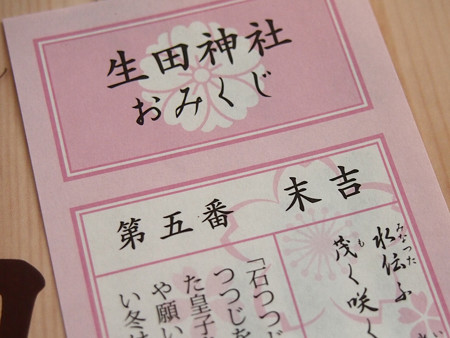 生田神社
おみくじ
第五番 末吉
水伝ふ
みなつた
茂く咲く
も
「石つつ
つつじを
た皇子
や願い
い冬は